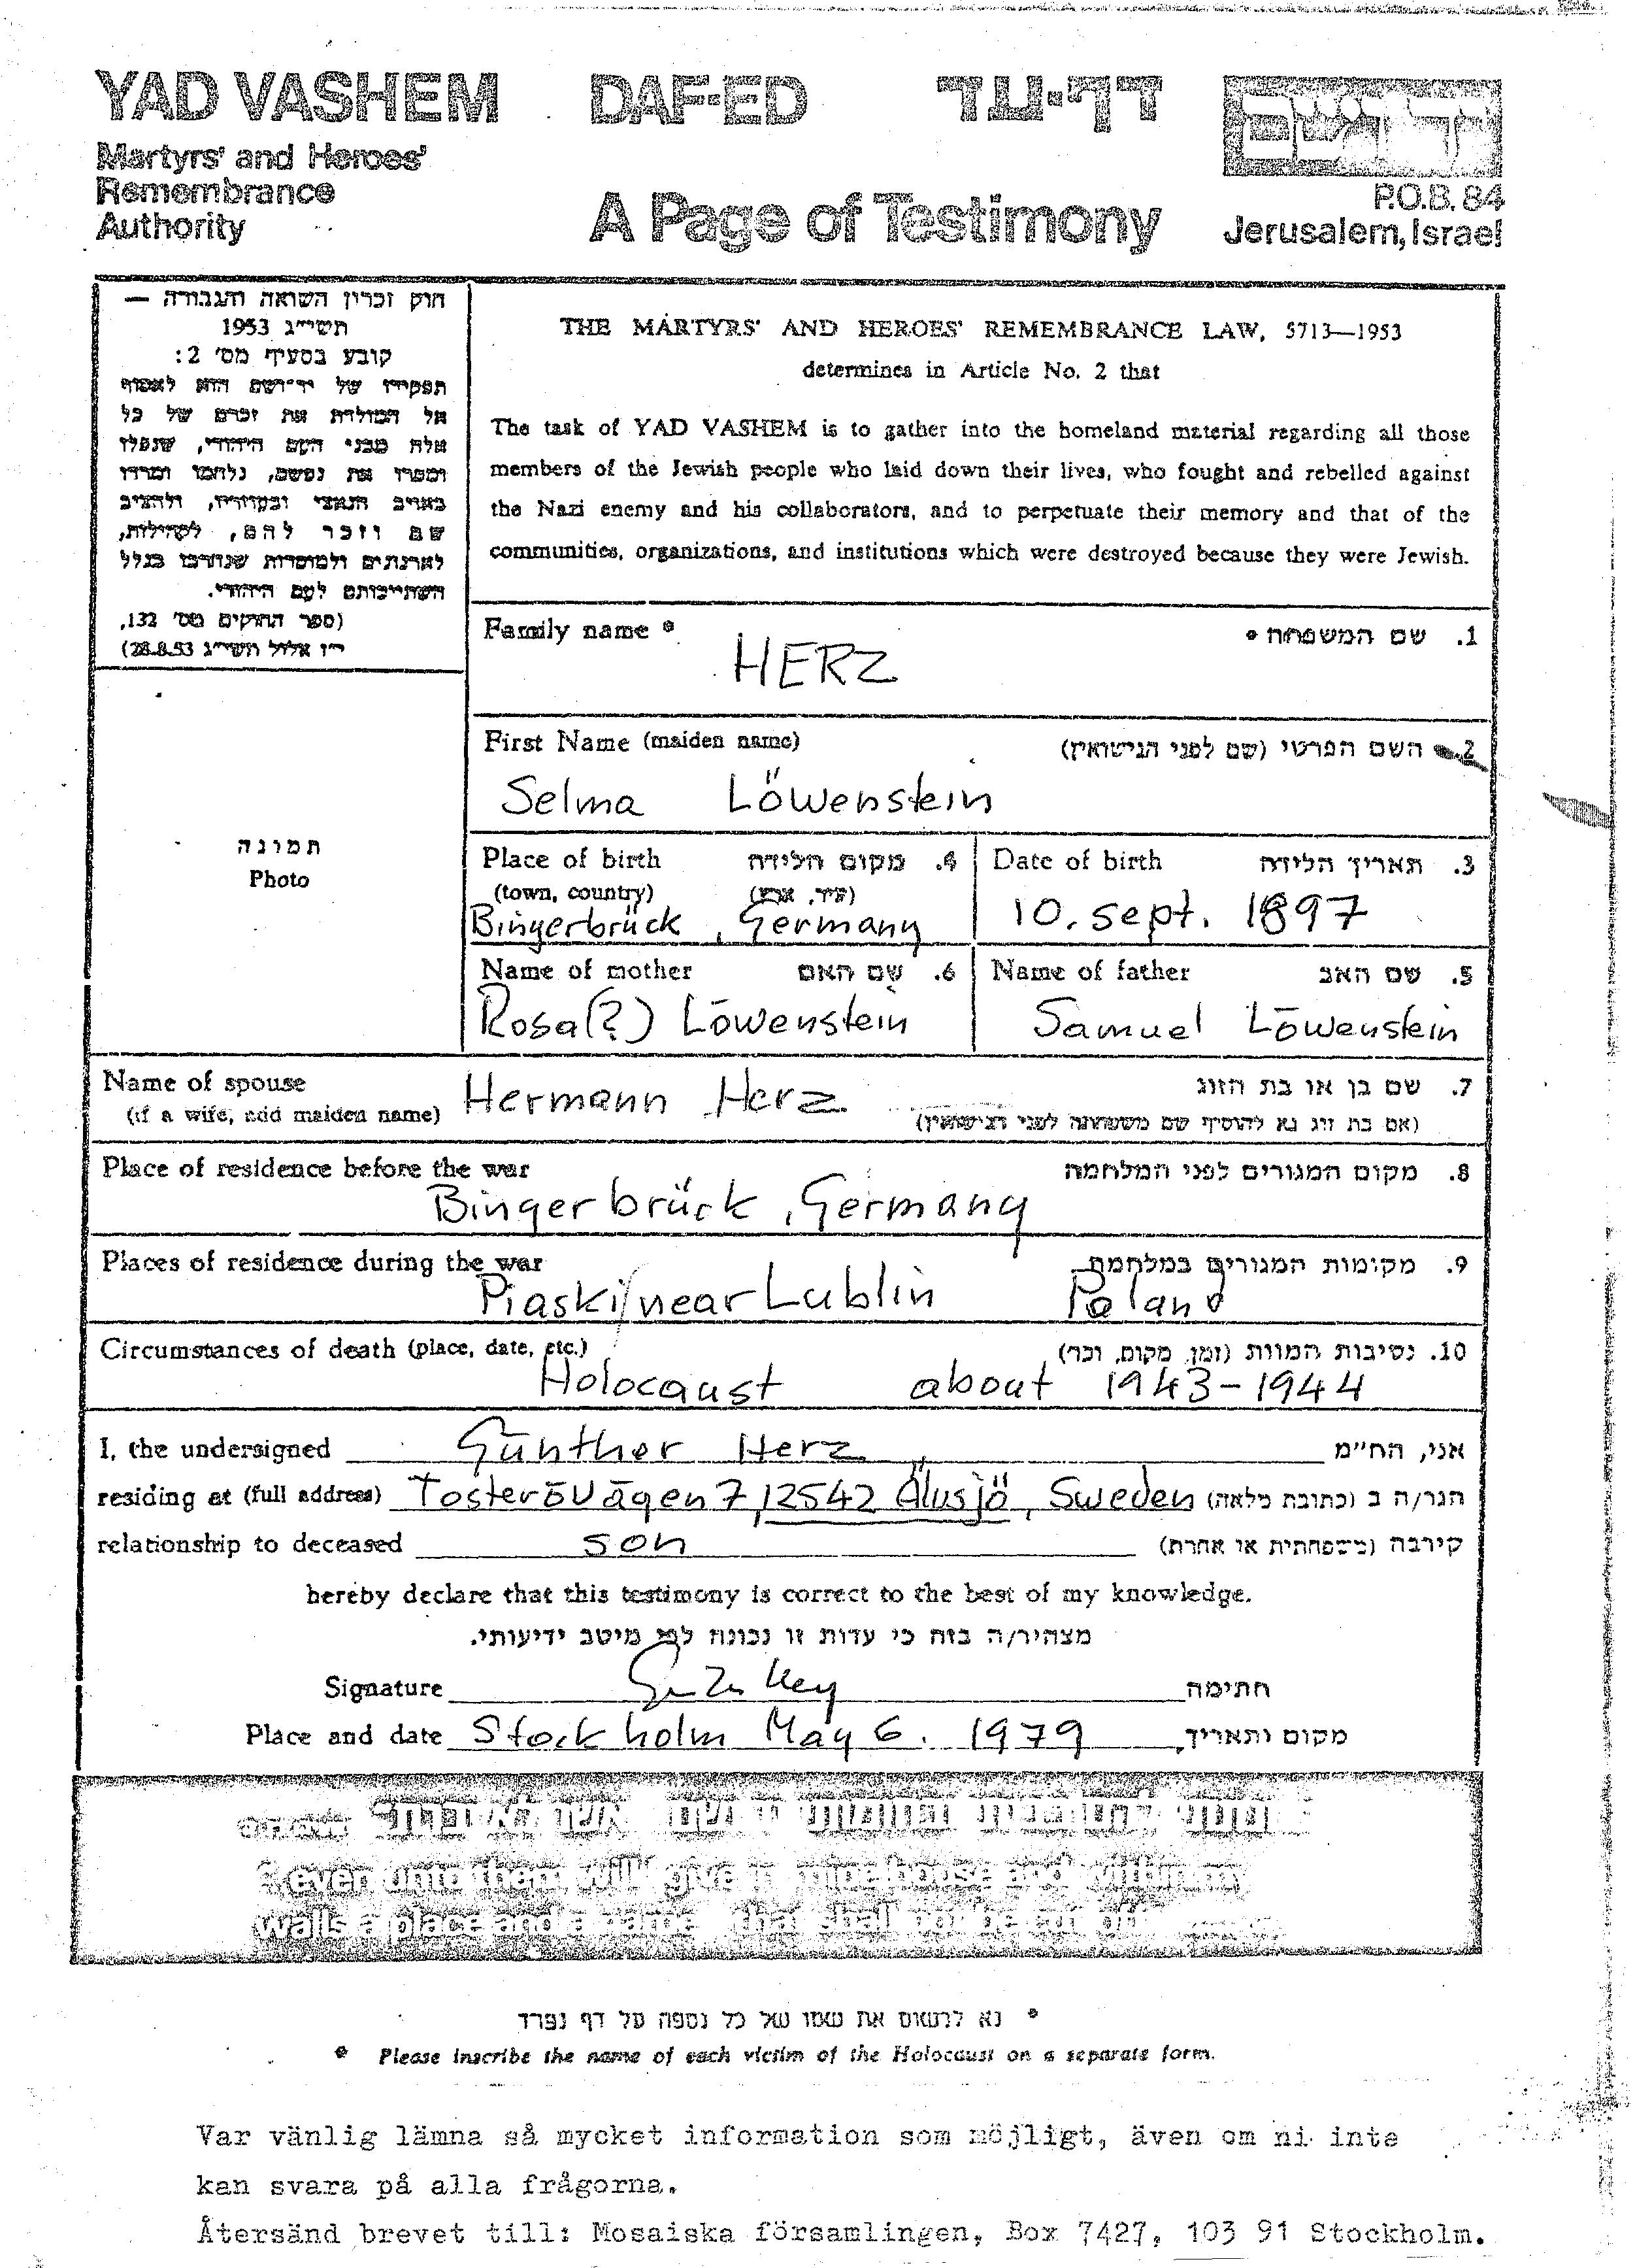 YAD VASHEM DAF-ED דף-עד
Martyrs' and Heroes'
Remembrance
Authority
A Page of Testimony
P.O.B. 84
Jerusalem, Israel
חוק זכרון השואה והגבורה —
תשי״ג 1953
קובע בסעיף מס' 2:
תפקידו של יד־ושם הוא לאסוף
אל המולדת את זכרם של כל
אלה מבני העם היהודי, שנפלו
ומסרו את נפשם, נלחמו ומרדו
באויב הנאצי ובעוזריו, ולהציב
שם וזכר להם, לקהילות,
לארגונים ולמוסדות שנחרבו בגלל
השתייכותם לעם היהודי.
(ספר החוקים מס' 132,
י״ז אלול תשי״ג 28.8.53)
THE MARTYRS' AND HEROES' REMEMBRANCE LAW, 5713—1953
determines in Article No. 2 that
The task of YAD VASHEM is to gather into the homeland material regarding all those
members of the Jewish people who laid down their lives, who fought and rebelled against
the Nazi enemy and his collaborators, and to perpetuate their memory and that of the
communities, organizations, and institutions which were destroyed because they were Jewish.
Family name * 1. שם המשפחה *
HERZ
First Name (maiden name) 2. השם הפרטי (שם לפני הנישואין)
Selma Löwenstein
תמונה
Photo
Place of birth 4. מקום הלידה
(town, country) (עיר, ארץ)
Bingerbrück, Germany
Date of birth 3. תאריך הלידה
10. sept. 1897
Name of mother 6. שם האם
Rosa(?) Löwenstein
Name of father 5. שם האב
Samuel Löwenstein
Name of spouse 7. שם בן או בת הזוג
(if a wife, add maiden name) Hermann Herz (אם בת זוג נא להוסיף שם משפחתה לפני הנישואין)
Place of residence before the war 8. מקום המגורים לפני המלחמה
Bingerbrück, Germany
Places of residence during the war 9. מקומות המגורים במלחמה
Piaski/near Lublin Poland
Circumstances of death (place, date, etc.) 10. נסיבות המוות (זמן, מקום, וכו')
Holocaust about 1943-1944
I, the undersigned Günther Herz אני, הח״מ
residing at (full address) Tosterövägen 7, 12542 Älvsjö, Sweden הגר/ה ב (כתובת מלאה)
relationship to deceased son קירבה (משפחתית או אחרת)
hereby declare that this testimony is correct to the best of my knowledge.
מצהיר/ה בזה כי עדות זו נכונה לפי מיטב ידיעותי.
Signature חתימה
Place and date Stockholm May 6. 1979 מקום ותאריך
ונתתי להם בביתי ובחומותי יד ושם אשר לא יכרת
even unto them will I give in mine house and within my
walls a place and a name that shall not be cut off
* נא לרשום את שמו של כל נספה על דף נפרד
* Please inscribe the name of each victim of the Holocaust on a separate form.
Var vänlig lämna så mycket information som möjligt, även om ni inte
kan svara på alla frågorna.
Återsänd brevet till: Mosaiska församlingen, Box 7427, 103 91 Stockholm.